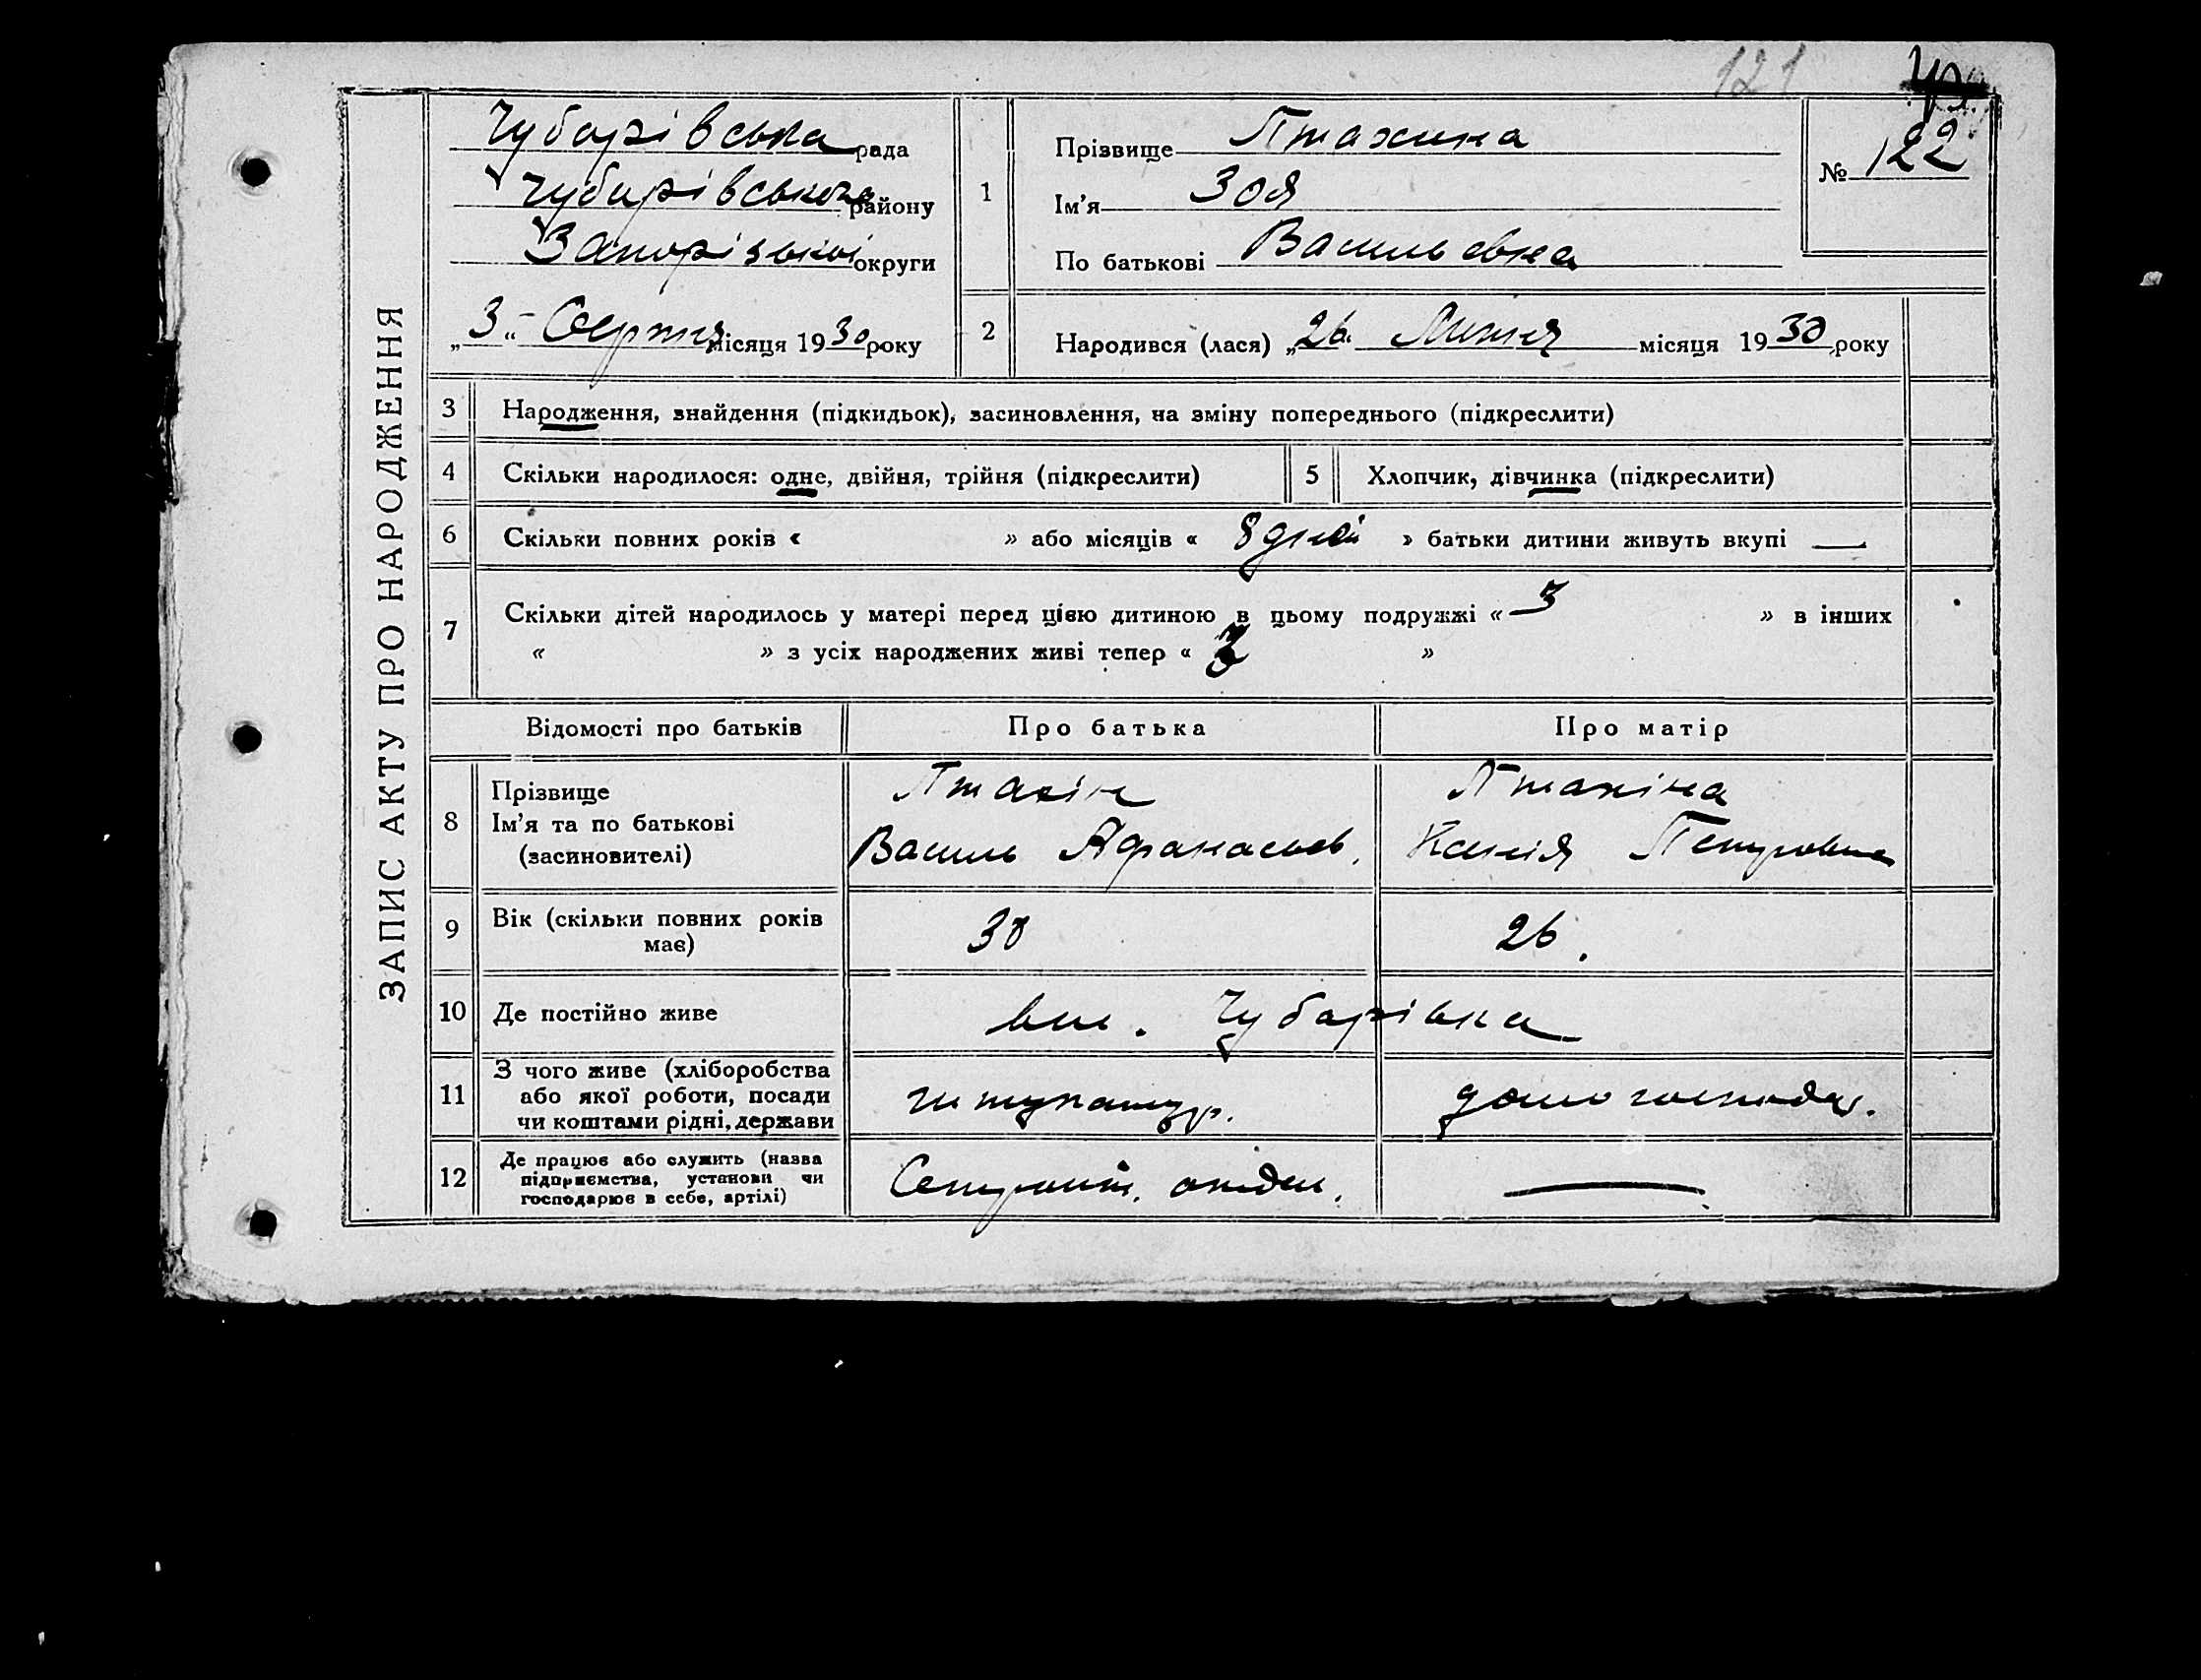 121
ЗАПИС АКТУ ПРО НАРОДЖЕННЯ
Чубарівська рада
Чубарівського району
Запорізької округи
„3“ Серпня місяця 1930 року
1
Прізвище Птахина
Ім'я Зоя
По батькові Васильевна
№ 122
2
Народився (лася) „26“ Липня місяця 1930 року
3 Народження, знайдення (підкидьок), засиновлення, на зміну попереднього (підкреслити)
4 Скільки народилося: одне, двійня, трійня (підкреслити) 5 Хлопчик, дівчинка (підкреслити)
6 Скільки повних років « » або місяців « 8 дней » батьки дитини живуть вкупі —
7 Скільки дітей народилось у матері перед цією дитиною в цьому подружжі « 3 » в інших
« » з усіх народжених живі тепер « 3 »
Відомості про батьків Про батька Про матір
8
Прізвище Птахін Птахіна
Ім'я та по батькові Василь Афанасьев. Ксенія Петровна
(засиновителі)
9 Вік (скільки повних років має) 30 26.
10 Де постійно живе вел. Чубарівка
11 З чого живе (хліборобства
або якої роботи, посади
чи коштами рідні, держави
штукатур. домогосподар.
12 Де працює або служить (назва
підприємства, установи чи
господарює в себе, артілі)
—